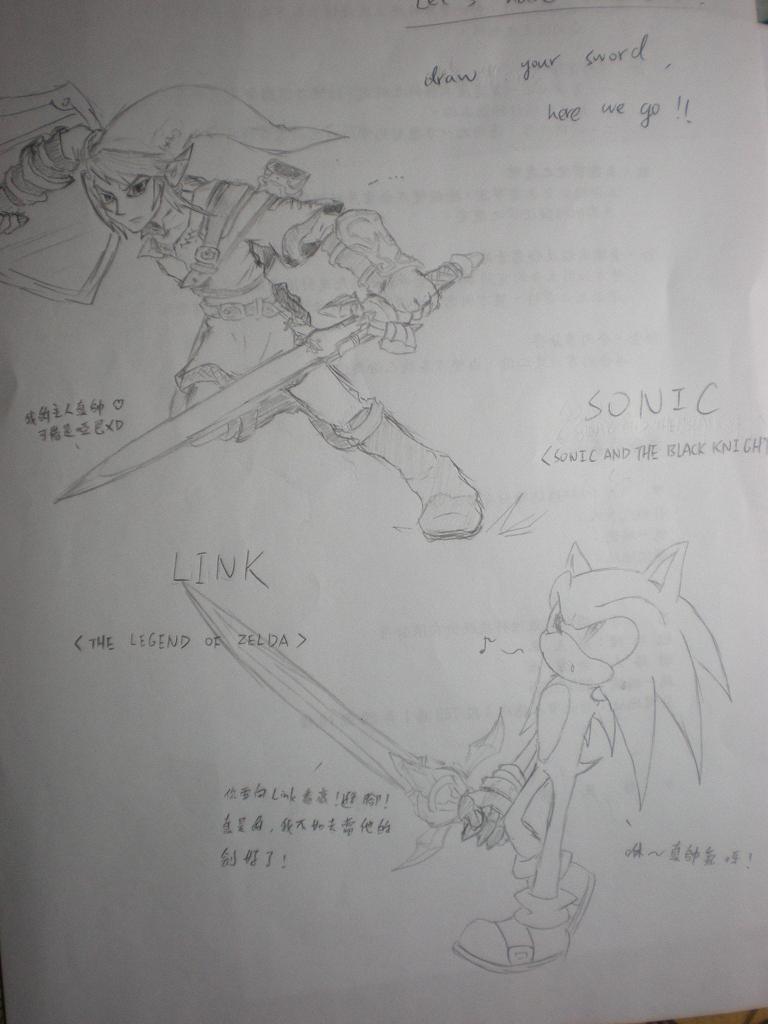 draw your sword,
here we go!!
我的主人真帥♡
可惜是啞巴XD
SONIC
<SONIC AND THE BLACK KNIGH
LINK
<THE LEGEND OF ZELDA>
你要向Link看齊!遜腳!
真是的,我不如去當他的
劍好了!
咻~真帥氣呀!